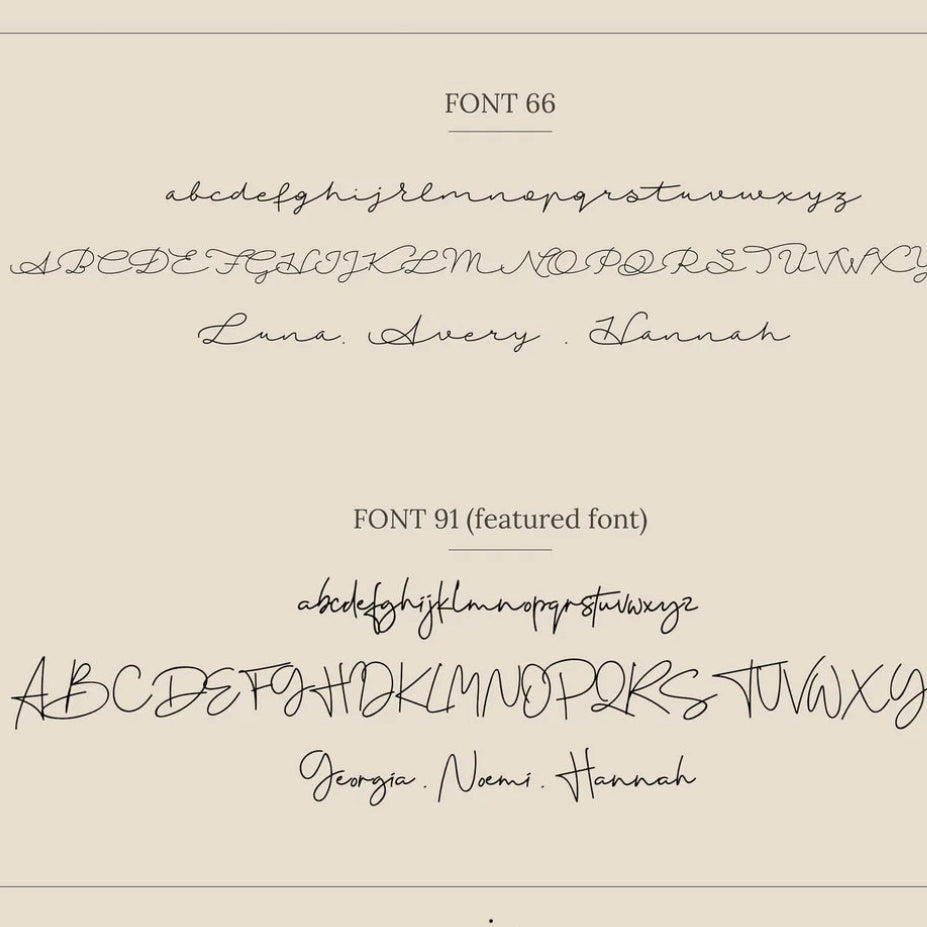 FONT 66
abcdefghijklmnopqrstuvwxyz
ABCDEFGHIJKLMNOPQRSTUVWXY
Luna. Avery . Hannah
FONT 91 (featured font)
abcdefghijklmnopqrstuvwxyz
ABCDEFGHIJKLMNOPQRSTUVWXY
Georgia . Noemi . Hannah